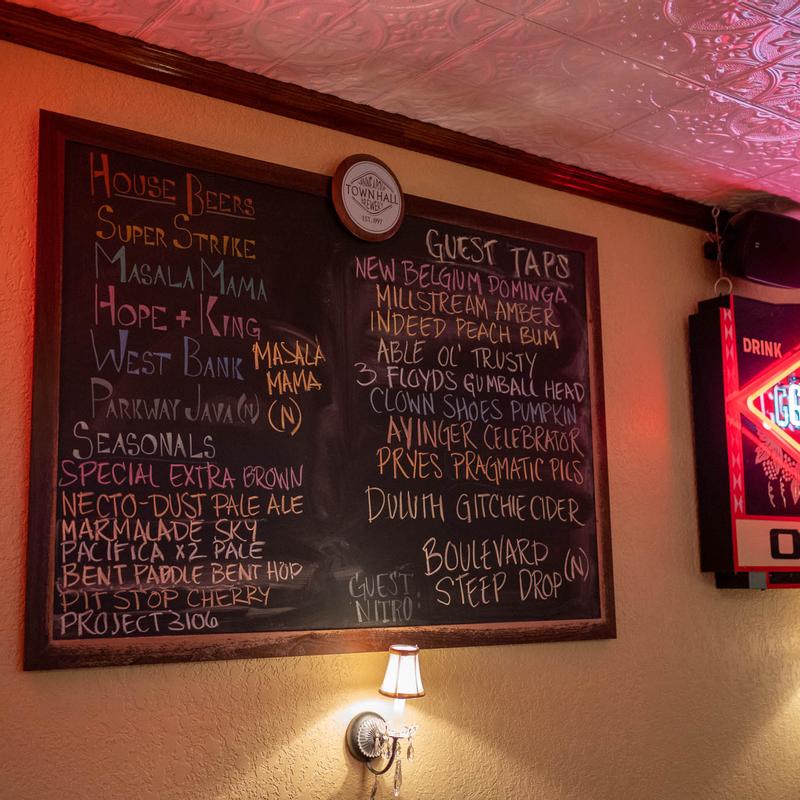 HOUSE BEERS
SUPER STRIKE
MASALA MAMA
HOPE + KING
WEST BANK
MASALA
MAMA
(N)
PARKWAY JAVA (N)
SEASONALS
SPECIAL EXTRA BROWN
NECTO-DUST PALE ALE
MARMALADE SKY
PACIFICA X2 PALE
BENT PADDLE BENT HOP
PIT STOP CHERRY
PROJECT 3106
TOWN HALL
BREWERY
EST. 1997
GUEST TAPS
NEW BELGIUM DOMINGA
MILLSTREAM AMBER
INDEED PEACH BUM
ABLE OL' TRUSTY
3 FLOYDS GUMBALL HEAD
CLOWN SHOES PUMPKIN
AYINGER CELEBRATOR
PRYES PRAGMATIC PILS
DULUTH GITCHIE CIDER
GUEST
NITRO:
BOULEVARD
STEEP DROP (N)
DRINK